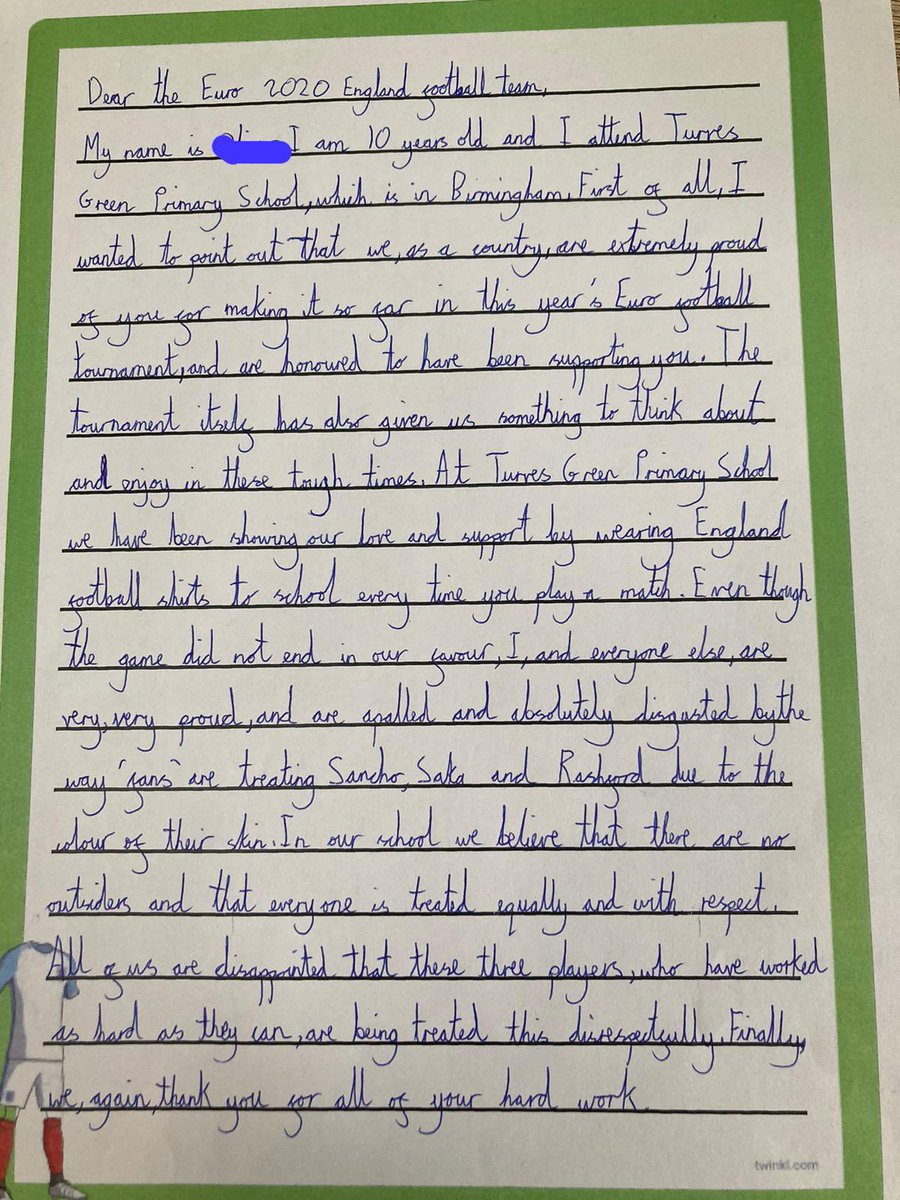 Dear the Euro 2020 England football team,
My name is I am 10 years old and I attend Turves
Green Primary School, which is in Birmingham. First of all, I
wanted to point out that we, as a country, are extremely proud
of you for making it so far in this year's Euro football
tournament, and are honoured to have been supporting you. The
tournament itself has also given us something to think about
and enjoy in these tough times. At Turves Green Primary School
we have been showing our love and support by wearing England
football shirts to school every time you play a match. Even though
the game did not end in our favour, I, and everyone else, are
very, very proud, and are apalled and absolutely disgusted by the
way 'fans' are treating Sancho, Saka and Rashford due to the
colour of their skin. In our school we believe that there are no
outsiders and that everyone is treated equally and with respect.
All of us are disappointed that these three players, who have worked
as hard as they can, are being treated this disrespectfully. Finally,
we, again, thank you for all of your hard work.
twinkl.com